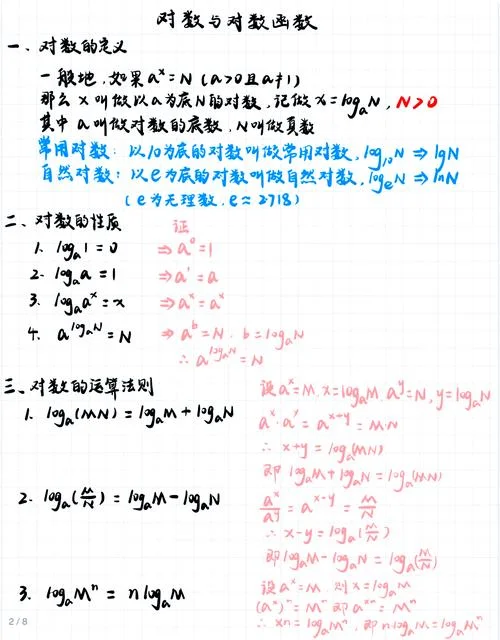 对数与对数函数
一、对数的定义
一般地,如果aˣ=N(a>0且a≠1)
那么x叫做以a为底N的对数,记做x=logₐN,N>0
其中a叫做对数的底数,N叫做真数
常用对数:以10为底的对数叫做常用对数,log₁₀N⇒lgN
自然对数:以e为底的对数叫做自然对数,logₑN⇒lnN
(e为无理数,e≈2.718)
二、对数的性质 证
1. logₐ1=0 ⇒a⁰=1
2. logₐa=1 ⇒a¹=a
3. logₐaˣ=x ⇒aˣ=aˣ
4. a^(logₐN)=N ⇒a^b=N,b=logₐN
∴a^(logₐN)=N
三、对数的运算法则
1. logₐ(MN)=logₐM+logₐN
设aˣ=M,x=logₐM,a^y=N,y=logₐN
aˣ·a^y=a^(x+y)=M·N
∴x+y=logₐ(MN)
即logₐM+logₐN=logₐ(MN)
2. logₐ(M/N)=logₐM-logₐN
aˣ/a^y=a^(x-y)=M/N
∴x-y=logₐ(M/N)
即logₐM-logₐN=logₐ(M/N)
3. logₐMⁿ=nlogₐM
设aˣ=M,则x=logₐM
(aˣ)ⁿ=Mⁿ即a^(xn)=Mⁿ
∴xn=logₐMⁿ,即nlogₐM=logₐMⁿ
2/8